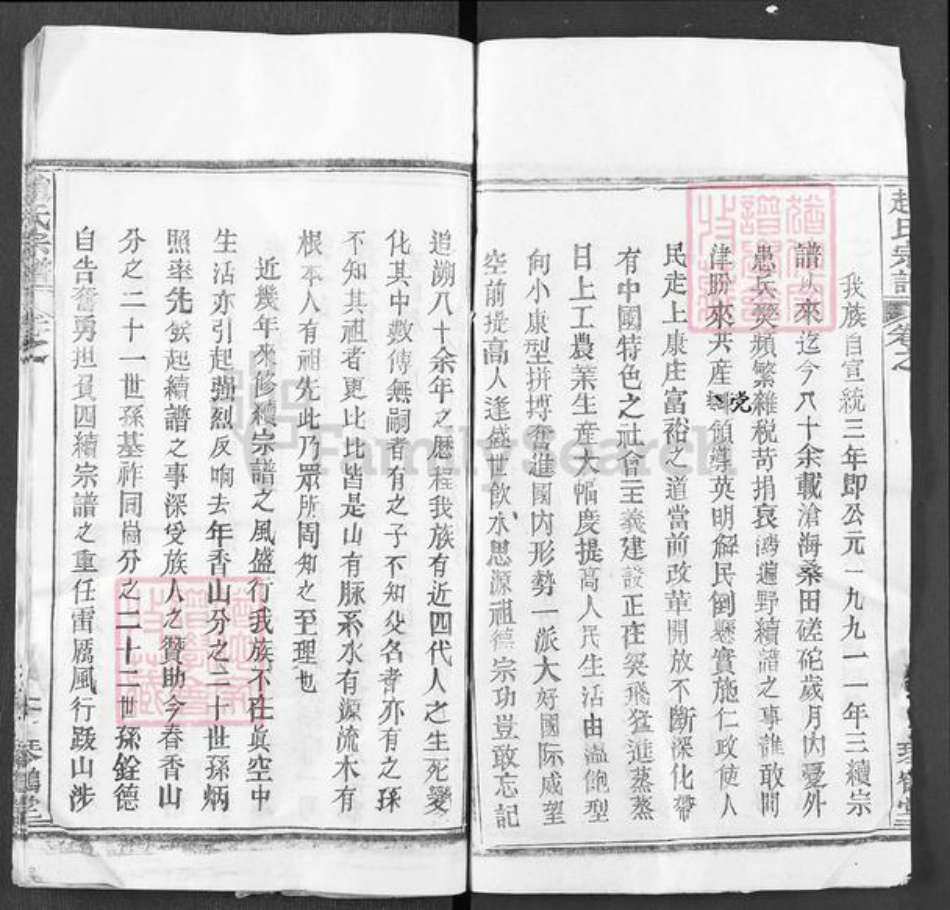 趙氏宗譜
我族自宣統三年即公元一九九一一年三續宗
譜以來迄今八十余載滄海桑田磋砣歲月内憂外
患兵燹頻繁雜税苛捐哀鴻遍野續譜之事誰敢問
津盼來共産党領導英明解民倒懸實施仁政使人
民走上康庄富裕之道當前政革開放不断深化帶
有中國特色之社會主義建設正在突飛猛進蒸蒸
日上工農業生産大幅度提高人民生活由温飽型
向小康型拼搏奮進國内形勢一派大好國际威望
空前提高人逢盛世飲水思源祖德宗功豈敢忘記
追溯八十余年之歷程我族有近四代人之生死變
化其中数傳無嗣者有之子不知父名者亦有之孫
不知其祖者更比比皆是山有脉系水有源流木有
根本人有祖先此乃眾所周知之至理也
近幾年來修續宗譜之風盛行我族不在真空中
生活亦引起强烈反响去年香山分之二十世孫炳
照率先發起續譜之事深受族人之贊助今春香山
分之二十一世孫基祚同崗分之二十二世孫銓德
自告奮勇担負四續宗譜之重任雷厲風行跋山涉
氏宗譜
琴鶴堂
FamilySearch